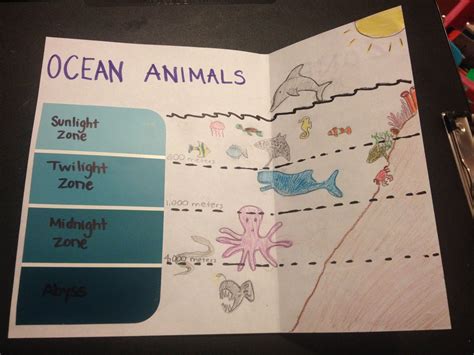 OCEAN ANIMALS
Sunlight
Zone
meters
Twilight
Zone
1,000 meters
Midnight
Zone
4,000 meters
Abyss